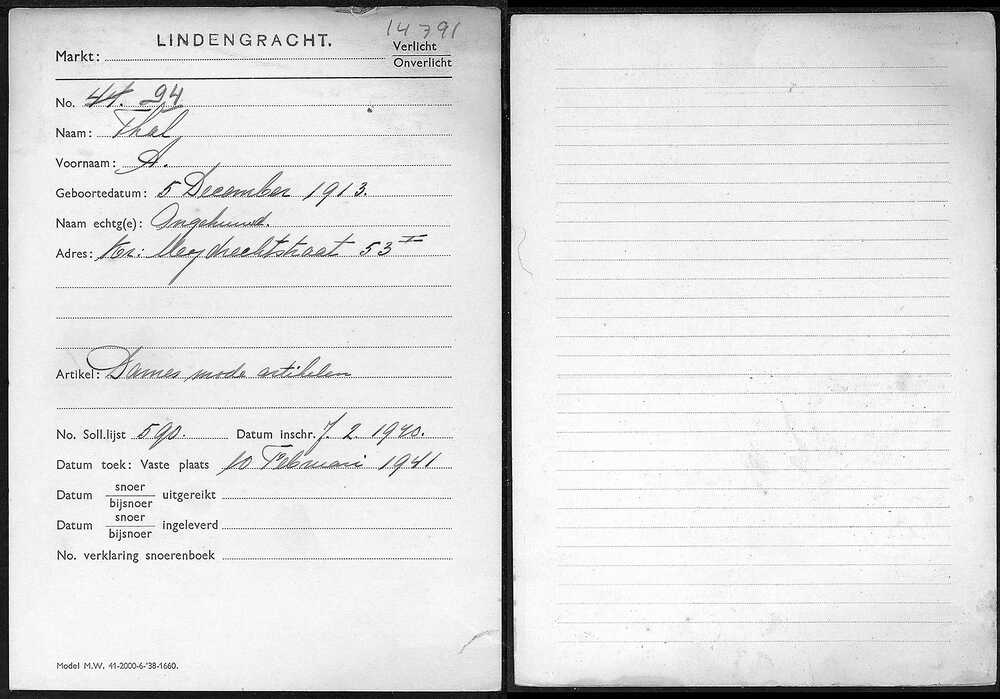 14791
LINDENGRACHT.
Markt: Verlicht
Onverlicht
No. 44. 94
Naam: Thal
Voornaam: A.
Geboortedatum: 5 December 1913.
Naam echtg(e): Ongehuwd.
Adres: Kr: Meydrechtstraat 53 I
Artikel: Dames mode artikelen
No. Soll.lijst 590. Datum inschr. 7. 2. 1940.
Datum toek: Vaste plaats 10 Februari 1941
Datum snoer/bijsnoer uitgereikt
Datum snoer/bijsnoer ingeleverd
No. verklaring snoerenboek
Model M.W. 41-2000-6-'38-1660.